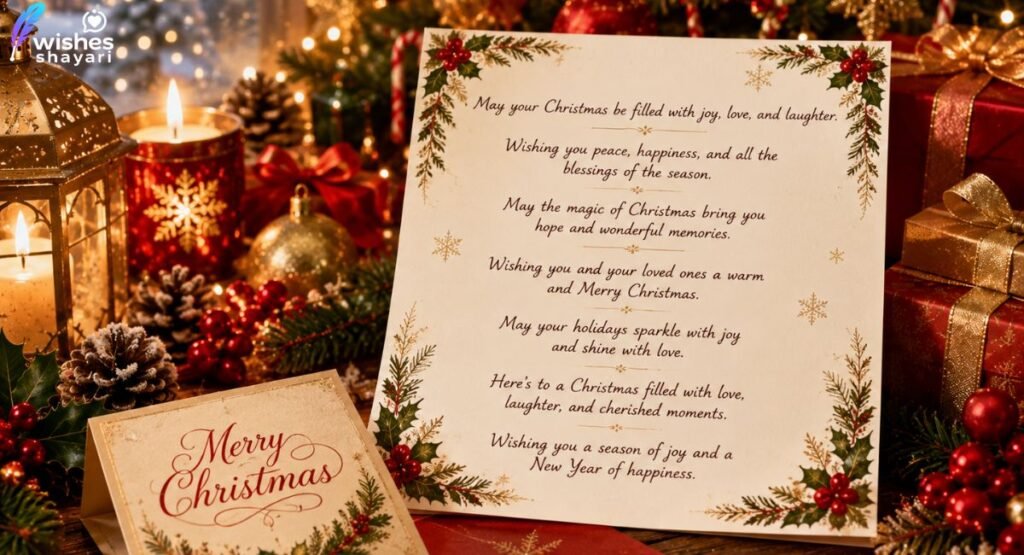 wishes
shayari
May your Christmas be filled with joy, love, and laughter.
Wishing you peace, happiness, and all the
blessings of the season.
May the magic of Christmas bring you
hope and wonderful memories.
Wishing you and your loved ones a warm
and Merry Christmas.
May your holidays sparkle with joy
and shine with love.
Here's to a Christmas filled with love,
laughter, and cherished moments.
Wishing you a season of joy and a
New Year of happiness.
Merry
Christmas